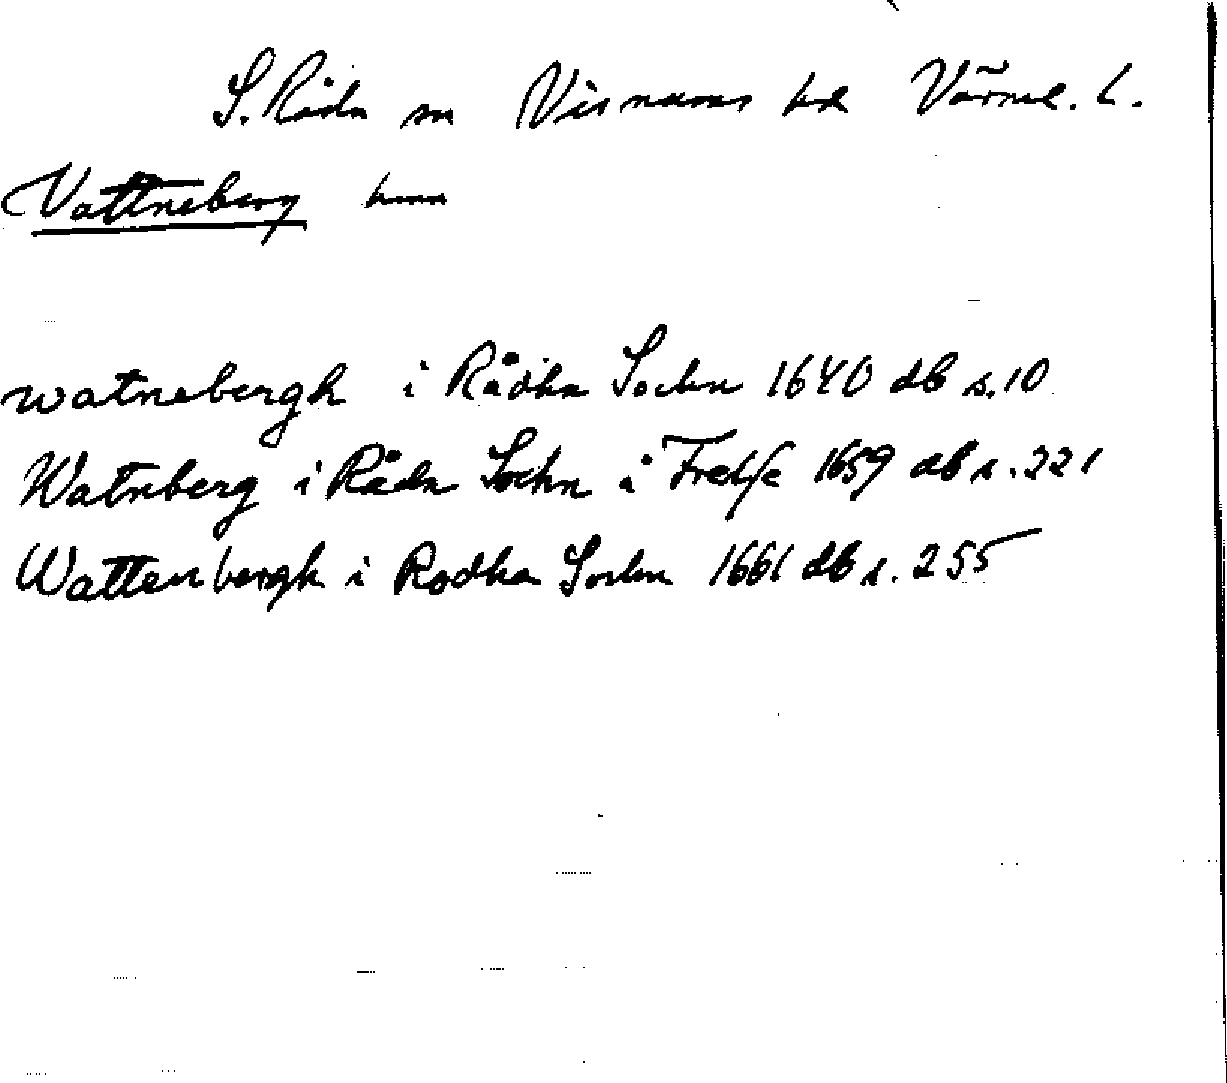 S. Råda sn Visnums hd Värml. l.
Vattneberg hmn
watnebergh i Rådha Sochn 1640 db s. 10
Watnberg i Råda Sochn å Frelse 1659 db s. 221
Wattenbergh i Rodha Sochn 1661 db s. 255